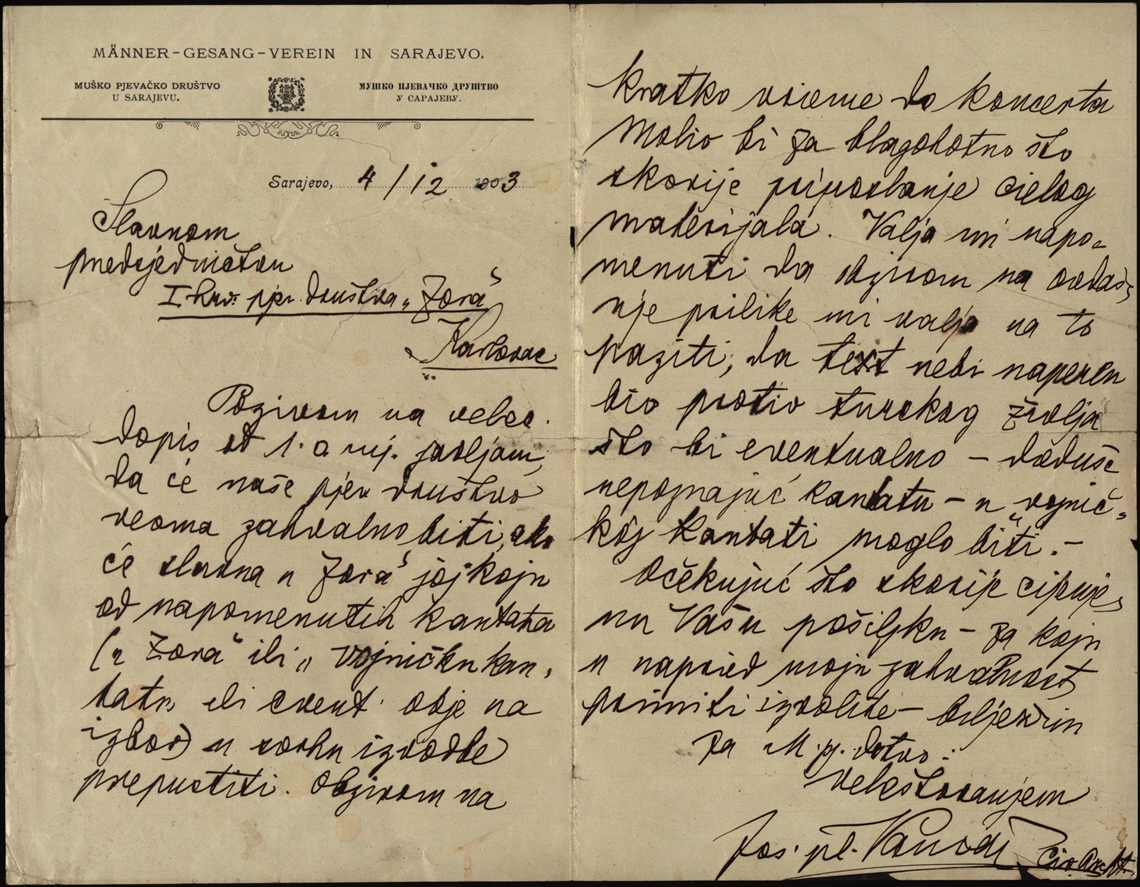 MÄNNER-GESANG-VEREIN IN SARAJEVO.
MUŠKO PJEVAČKO DRUŠTVO
U SARAJEVU.
МУШКО ПЈЕВАЧКО ДРУШТВО
У САРАЈЕВУ.
Sarajevo, 4/12 1903
Slavnom
predsjedništvu
I. hrv. pjev. društva „Zora“
Karlovac
Pozivom na velec.
dopis od 1. o. mj. javljam,
da će naše pjev. društvo
veoma zahvalno biti, ako
će slavna „Zora“ joj koju
od napomenutih kantata
(„Zora“ ili „Vojničku kan-
tatu ili event. obje na
izbor) u svrhu izvedbe
prepustiti. Obzirom na
kratko vrieme do koncerta
molio bi za blagohotno što
skorije pripostanje cielog
materijala. Valja mi napo-
menuti da obzirom na ovdaš-
nje prilike mi valja na to
paziti, da text nebi naperen
bio protiv turskog življa
što bi eventualno – doduše
nepoznajuć kantatu – u „vojnič-
koj kantati“ moglo biti. –
Očekujuć što skorije cijenje-
nu Vašu pošiljku – za koju
u napried moju zahvalnost
primiti izvolite – bilježim
za M. pj. dotvo.
veleštovanjem
Jos. pl. Vancaš